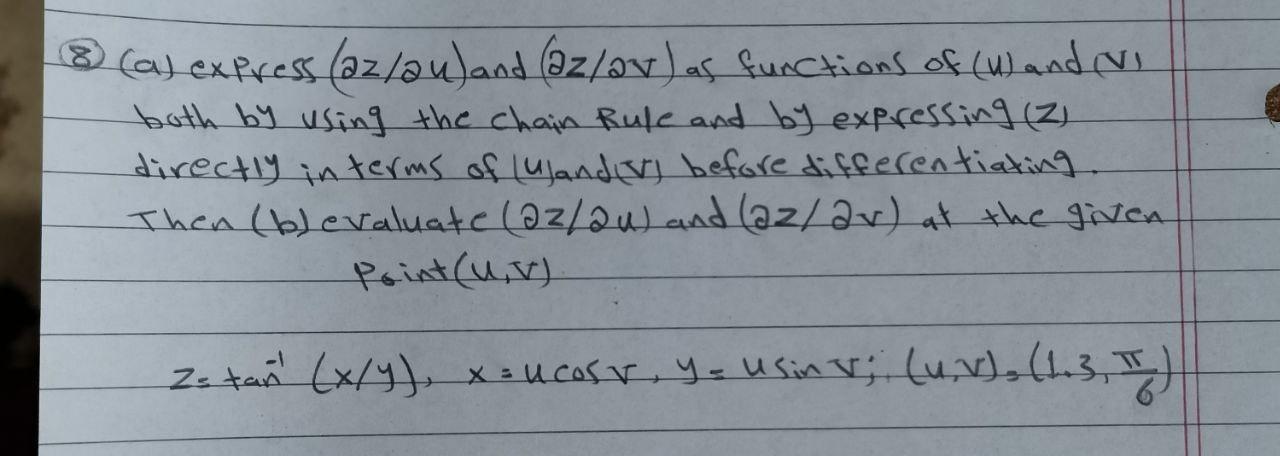 ⑧ (a) express (∂z/∂u) and (∂z/∂v) as functions of (u) and (v)
both by using the chain Rule and by expressing (z)
directly in terms of (u) and (v) before differentiating.
Then (b) evaluate (∂z/∂u) and (∂z/∂v) at the given
Point (u,v)
z = tan⁻¹ (x/y), x = u cos v, y = u sin v; (u,v) = (1.3, π/6)